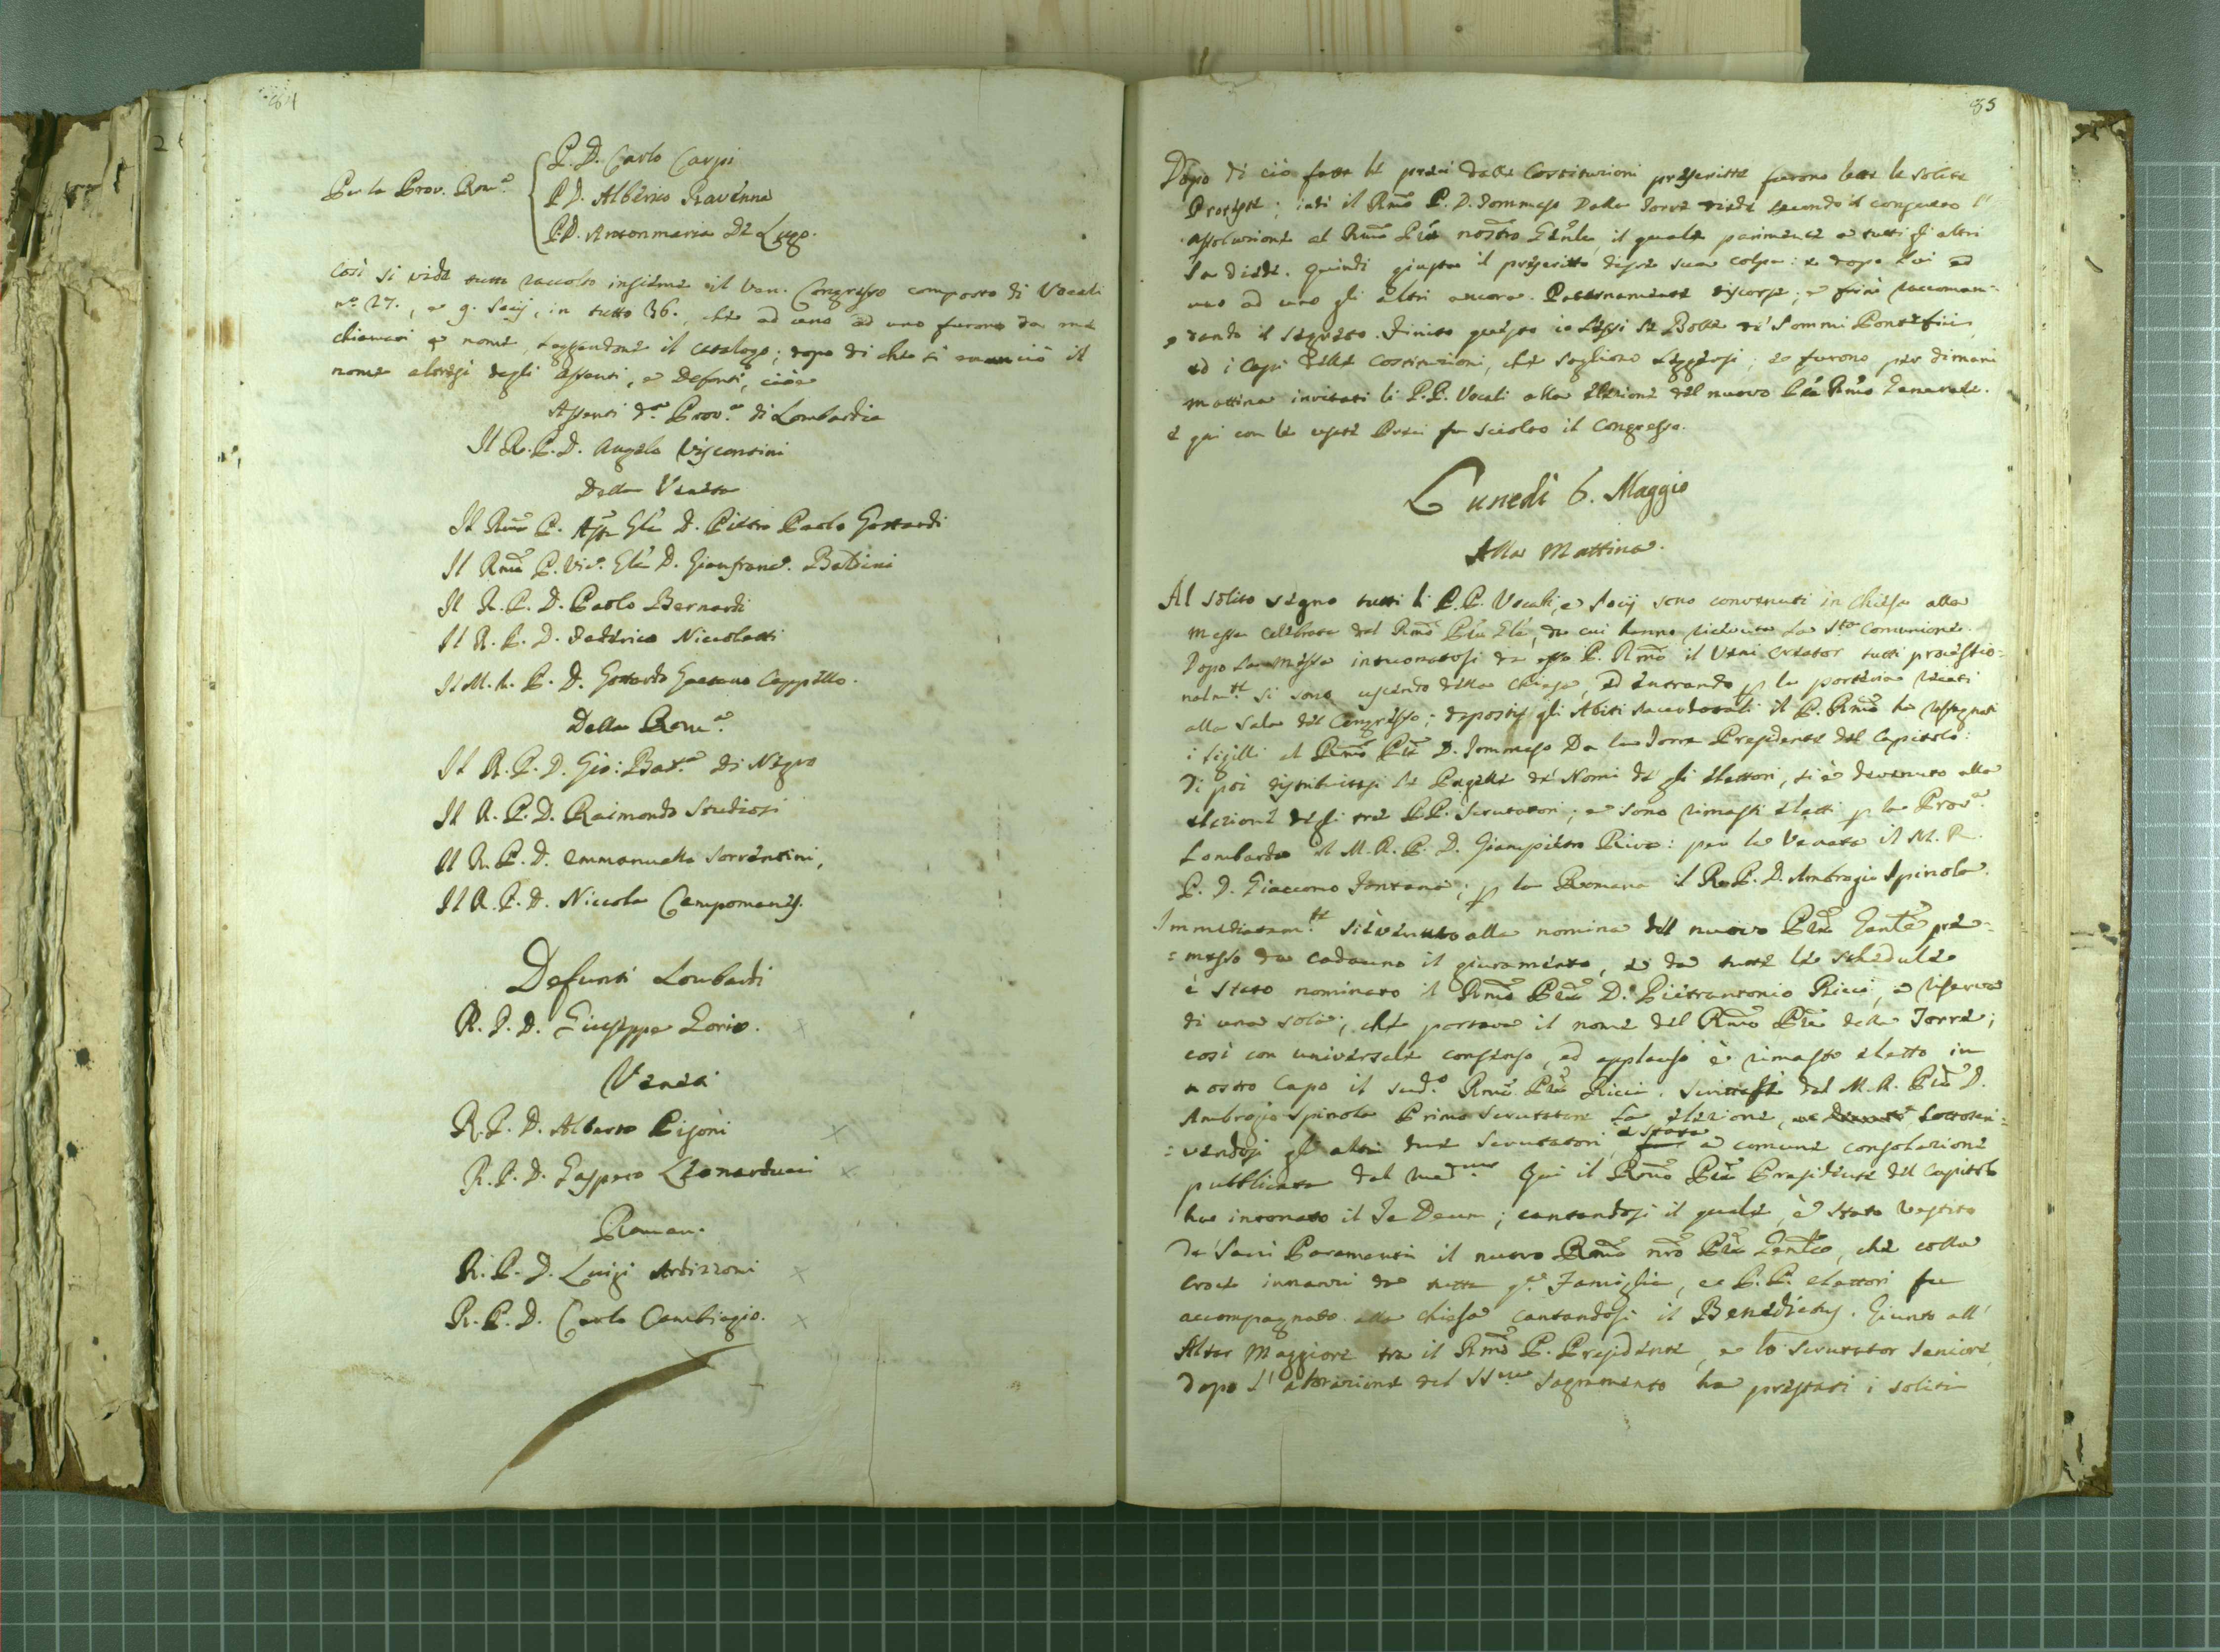 84
P. D. Carlo Carpi
Per la Prov. Rom.ª
P. D. Alberico Ravenna
P. D. Antonmaria De Lugo.
Così si vide tutto raccolto insieme il Ven. Congresso composto di Vocali
nº. 27., e 9. Socij, in tutto 36., che ad uno ad uno furono da me
chiamati p nome, leggendone il catalogo; dopo di che si annunciò il
nome altresì degli Assenti, e Defonti, cioè
Assenti d.ª Prov.ª di Lombardia
Il R. P. D. Angelo Viscontini
Della Veneta
Il Rmo P. Ass. Gle D. Pietro Paolo Gottardi
Il Rmo P. Vic. Gle D. Gianfranc. Baldini
Il R. P. D. Paolo Bernardi
Il R. P. D. Federico Nicoletti
Il M. R. P. D. Gottardo Gaetano Cappello.
Della Rom.ª
Il R. P. D. Gio: Bat.ª di Negro
Il R. P. D. Raimondo Studiosi
Il R. P. D. Emmanuelle Sorrentini,
Il R. P. D. Niccola Campomanes.
Defunti Lombardi
R. P. D. Giuseppe Zorio.
Veneti
R. P. D. Alberto Pisoni
R. P. D. Gasparo Leonarducci
Roman.
R. P. D. Luigi Ardizzoni
R. P. D. Carlo Cambiagio.
85
Dopo di ciò fatte le preci dalle Costituzioni prescritte furono lette le solite
Proteste; indi il Rmo P. D. Tommaso Dalla Torre diede secondo il consueto l'
assoluzione al Rmo Pre nostro Genle, il quale parimente a tutti gli altri
la diede. Quindi giusta il prescritto disse sua colpa: e dopo lui ad
uno ad uno gli altri ancora. Paternamente discorse; e finì raccoman-
dando il segreto. Finito questo io lessi le Bolle de' Sommi Pontefici,
ed i Capi delle Costituzioni, che sogliono leggersi; e furono per dimani
mattina invitati li P.P. Vocali alla elezione del nuovo Pre Rmo Generale.
e qui con le usate Preci fu sciolto il Congresso.
Lunedì 6. Maggio
Alla Mattina.
Al solito segno tutti li P.P. Vocali, e Socij sono convenuti in Chiesa alla
Messa celebrata dal Rmo Pre Gle, da cui hanno ricevuta la Sta Comunione.
Dopo la messa intuonatosi da esso P. Rmo il Veni Creator tutti procession-
nalm.te si sono uscendo della Chiesa, ed entrando p la porteria recati
alla Sala del Congresso; depostisi gli Abiti Sacerdotali il P. Rmo ha rassegnati
i Sigilli al Rmo Pre D. Tommaso Da la Torre Presidente del Capitolo:
Di poi distribuitesi le Pagelle de' Nomi de gli elettori, si è devenuto alla
elezione degli tre P.P. Scrutatori; e sono rimasti eletti p la Prov.ª
Lombarda il M. R. P. D. Giampietro Riva: per la Veneta il M. R.
P. D. Giacomo Fontana; p la Romana il R. P. D. Ambrogio Spinola.
Immediatam.te si è venuto alla nomina del nuovo Pre Genle pre-
=messo da cadauno il giuramento, e da tutte le schedule
è stato nominato il Rmo Pre D. Pietrantonio Ricci, a riserva
di una sola; che portava il nome del Rmo Pre della Torre;
così con universale consenso, ed applauso è rimasto eletto in
nostro Capo il sud.º Rmo Pre Ricci. Scrittasi dal M. R. Pre D.
Ambrogio Spinola Primo Scrutatore la elezione, sottoscri-
=vendosi gli altri due Scrutatori, è stata a comune consolazione
pubblicata dal med.mo Qui il Rmo Pre Presidente del Capitolo
ha intonato il Te Deum; cantandosi il quale, è stato vestito
da' Sacri Paramenti il nuovo Rmo nro Pre Genle, che colla
Croce innanzi da tutta q.ta Famiglia, e P.P. elettori fu
accompagnato alla Chiesa cantandosi il Benedictus. Giunto all'
Altar Maggiore tra il Rmo P. Presidente, e lo Scrutator Seniore
dopo l'adorazione del SSmo Sagramento ha prestati i soliti